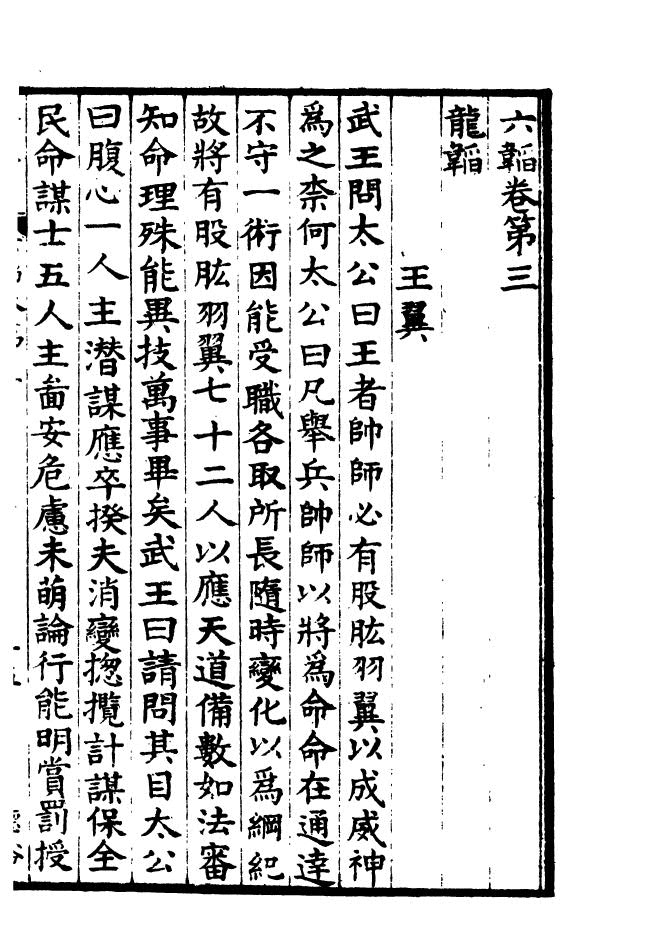 六韜卷第三
龍韜
王翼
武王問太公曰王者帥師必有股肱羽翼以成威神
爲之柰何太公曰凡舉兵帥師以將爲命命在通達
不守一術因能受職各取所長隨時變化以爲綱紀
故將有股肱羽翼七十二人以應天道備數如法審
知命理殊能異技萬事畢矣武王曰請問其目太公
曰腹心一人主潛謀應卒揆天消變揔攬計謀保全
民命謀士五人主啚安危慮未萌論行能明賞罰授